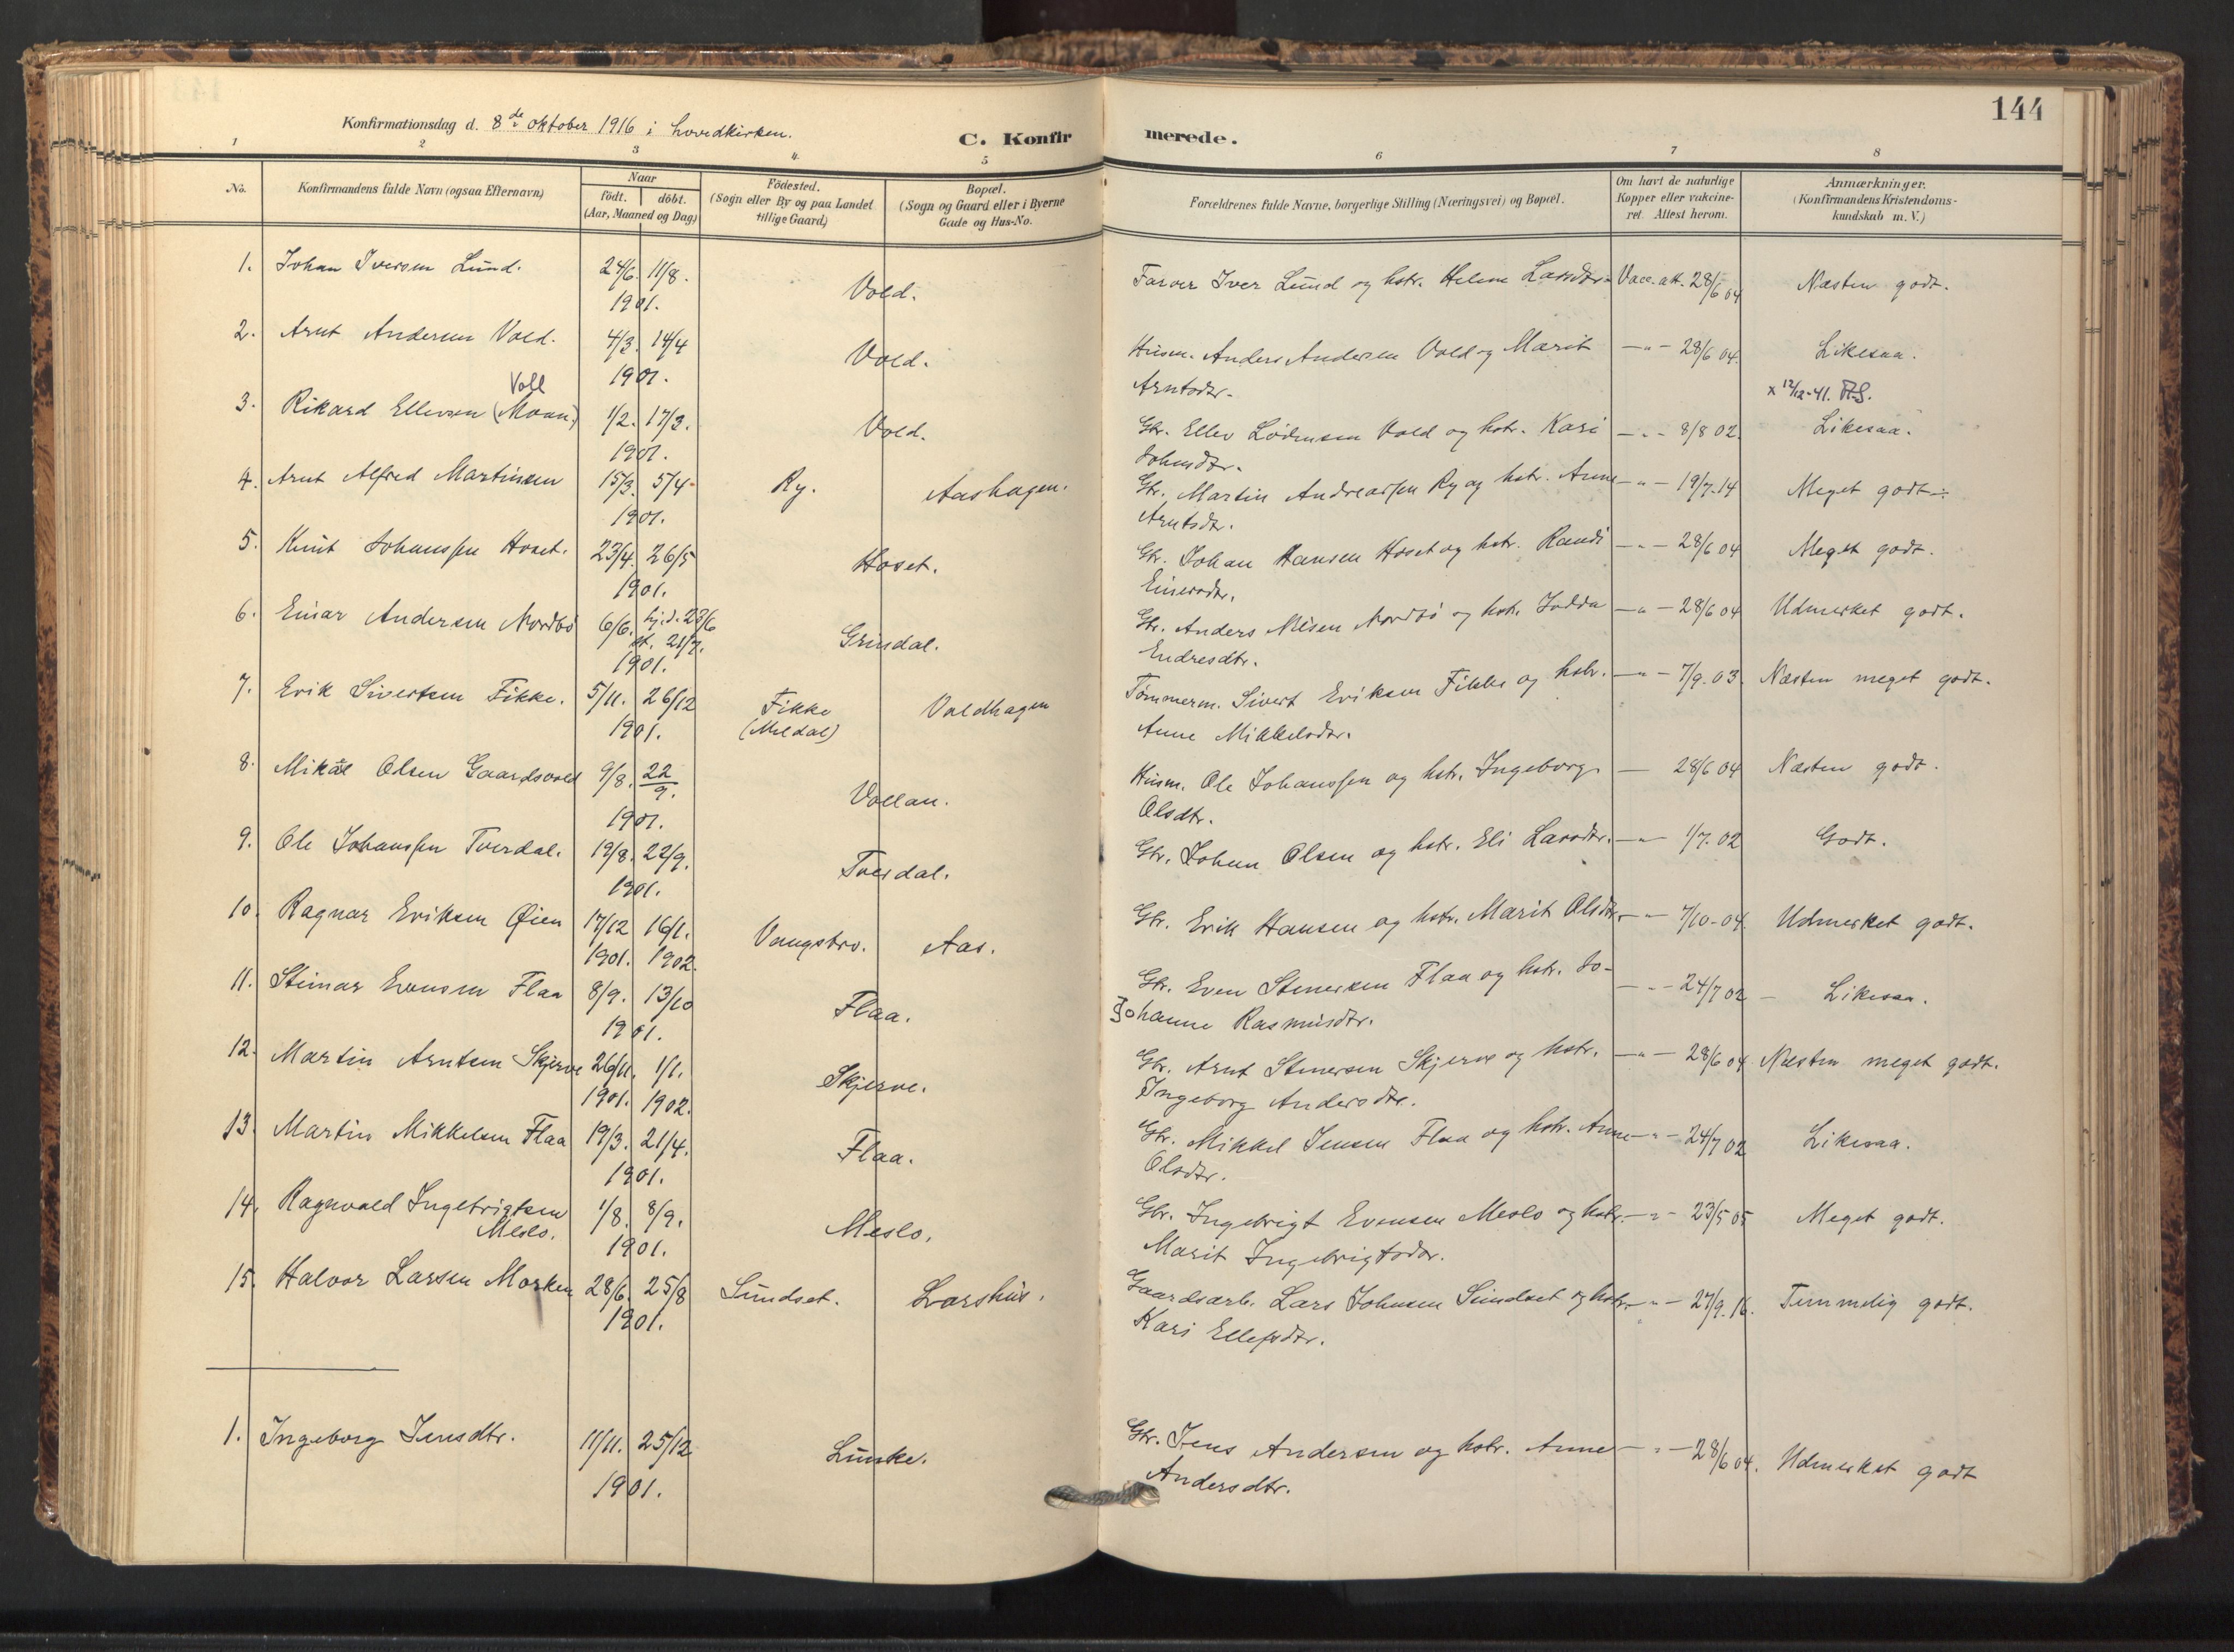 144
Konfirmationsdag d. 8de oktober 1916 i hovedkirken.
C. Konfirmerede.
1 2 3 4. 5 6 7 8
No. Konfirmandens fulde Navn (ogsaa Efternavn) Naar födt. döbt. (Aar, Maaned og Dag) Födested. (Sogn eller By og paa Landet tillige Gaard) Bopæl. (Sogn og Gaard eller i Byerne Gade og Hus-No. Forældrenes fulde Navne, borgerlige Stilling (Næringsvei) og Bopæl. Om havt de naturlige Kopper eller vakcineret. Attest herom. Anmærkninger. (Konfirmandens Kristendomskundskab m. V.)
1. Johan Iversen Lund. 24/6. 11/8. Vold. Farver Iver Lund og hstr. Helene Larsdtr. Vacc. att. 28/6 04 Næsten godt.
1901.
2. Arnt Andersen Vold. 4/3. 14/4 Vold. Husm. Anders Andersen Vold og Marit —"— 28/6 04. Likesaa.
1901. Arntsdtr.
Voll x 12/12-41.
3. Rikard Ellevsen (Moan) 1/2. 17/3. Vold. Gbr. Ellev Lodensen Vold og hstr. Kari —"— 8/8 02. Likesaa.
1901. Johnsdtr.
4. Arnt Alfred Martinsen 15/3. 5/4. Ry. Aashagen. Gbr. Martin Andreassen Ry og hstr. Anne —"— 19/7.14 Meget godt ÷
1901. Arntsdtr.
5. Knut Johanssen Hoset. 23/4. 26/5 Hoset. Gbr. Johan Hansen Hoset og hstr. Randi —"— 28/6 04 Meget godt.
1901. Einersdtr.
6. Einar Andersen Nordbö 6/6. hj.d. 23/6 Grindal. Gbr. Anders Nilsen Nordbö og hstr. Jodda —"— 28/6 04 Udmerket godt.
st. 21/7. Endresdtr.
1901.
7. Erik Sivertsen Fikke. 5/11. 26/12 Fikke (Meldal) Voldhagen Tømmerm. Sivert Eriksen Fikke og hstr. —"— 7/9.03. Næsten meget godt.
1901. Anne Mikkelsdtr.
8. Mikal Olsen Gaardsvold 9/8. 22/9. Vollan. Husm. Ole Johanssen og hstr. Ingeborg — 28/6 04 Næsten godt.
1901. Olsdtr.
9. Ole Johanssen Tverdal. 19/8. 22/9. Tverdal. Gbr. Johan Olsen og hstr. Eli Larsdtr. —"— 1/7.02 Godt.
1901.
10. Ragnar Eriksen Øien 17/12 16/1. Vangsbro. Aas. Gbr. Erik Hansen og hstr. Marit Olsdtr. —"— 7/10-04. Udmerket godt.
1901. 1902.
11. Steinar Evensen Flaa 8/9. 13/10 Flaa. Gbr. Even Stenersen Flaa og hstr. Jo- —"— 24/7 02 — Likesaa.
1901. Johanne Rasmusdtr.
12. Martin Arntsen Skjerve 26/11. 1/1. Skjerve. Gbr. Arnt Stenersen Skjerve og hstr. —"— 28/6 04 Næsten meget godt.
1901. 1902. Ingeborg Andersdtr.
13. Martin Mikkelsen Flaa 19/3. 21/4. Flaa. Gbr. Mikkel Jensen Flaa og hstr. Anne —"— 24/7 02 Likesaa.
1901. Olsdtr.
14. Ragnvald Ingebrigtsen 1/8. 8/9. Meslo. Gbr. Ingebrigt Evensen Meslo og hstr. —"— 23/5 05 Meget godt.
Meslo. 1901. Marit Ingebrigtsdtr.
15. Halvor Larsen Morken 28/6. 25/8 Sundset. Larshus. Gaardsarb. Lars Johnsen Sundset og hstr. —"— 27/9.16. Temmelig godt.
1901. Kari Ellefsdtr.
1. Ingeborg Jensdtr. 11/11. 25/12 Lunke. Gbr. Jens Andersen og hstr. Anne —"— 28/6 04. Udmerket godt
1901. Andersdtr.